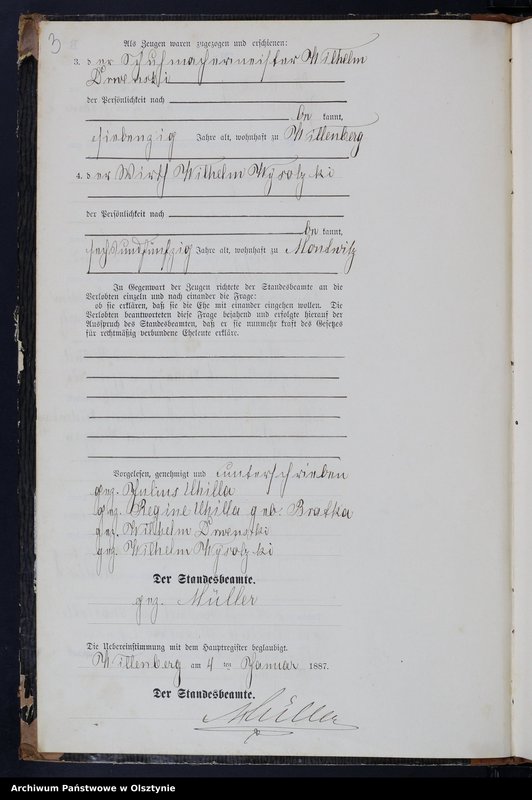 3
Als Zeugen waren zugezogen und erschienen:
3. der Schuhmachermeister Wilhelm
Drwenski
der Persönlichkeit nach
be kannt,
siebenzig Jahre alt, wohnhaft zu Willenberg
4. der Wirth Wilhelm Wysotzki
der Persönlichkeit nach
be kannt,
sechsundfünfzig Jahre alt, wohnhaft zu Montwitz
In Gegenwart der Zeugen richtete der Standesbeamte an die
Verlobten einzeln und nach einander die Frage:
ob sie erklären, daß sie die Ehe mit einander eingehen wollen. Die
Verlobten beantworteten diese Frage bejahend und erfolgte hierauf der
Ausspruch des Standesbeamten, daß er sie nunmehr kraft des Gesetzes
für rechtmäßig verbundene Eheleute erkläre.
Vorgelesen, genehmigt und unterschrieben
gez. Julius
gez. Regine geb: Bratka
gez. Wilhelm Drwenski
gez. Wilhelm Wysotzki
Der Standesbeamte.
gez. Müller
Die Uebereinstimmung mit dem Hauptregister beglaubigt.
Willenberg am 4 ten Januar 1887.
Der Standesbeamte.
Müller
Archiwum Państwowe w Olsztynie